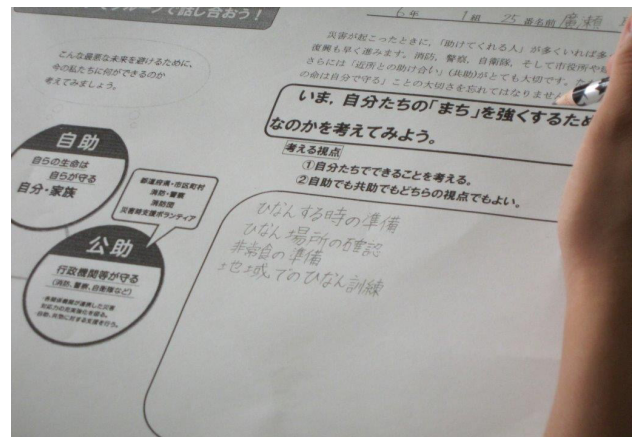 グループで話し合おう!
6年 1組 25番名前 廣瀬
こんな最悪な未来を避けるために、
今の私たちに何ができるのか
考えてみましょう。
災害が起こったときに、「助けてくれる人」が多くいれば多
復興も早く進みます。消防、警察、自衛隊、そして市役所や
さらには「近所との助け合い」(共助)がとても大切です。
の命は自分で守る」ことの大切さを忘れてはなりませ
いま、自分たちの「まち」を強くするため
なのかを考えてみよう。
考える視点
①自分たちでできることを考える。
②自助でも共助でもどちらの視点でもよい。
自助
自らの生命は
自らが守る
自分・家族
都道府県・市区町村
消防・警察
消防団
災害時支援ボランティア
公助
行政機関等が守る
(消防、警察、自衛隊など)
ひなんする時の準備
ひなん場所の確認
非常食の準備
地域でのひなん訓練